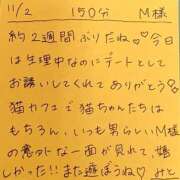 11/2 150分 M様
約2週間ぶりだね♡今日
は生理中なのにデートとして
お誘いしてくれてありがとう♡
猫カフェで猫ちゃんたちは
もちろん、いつも男らしいM様
の意外な一面が見れて、嬉
しかった!!また遊ぼうね♡ みと